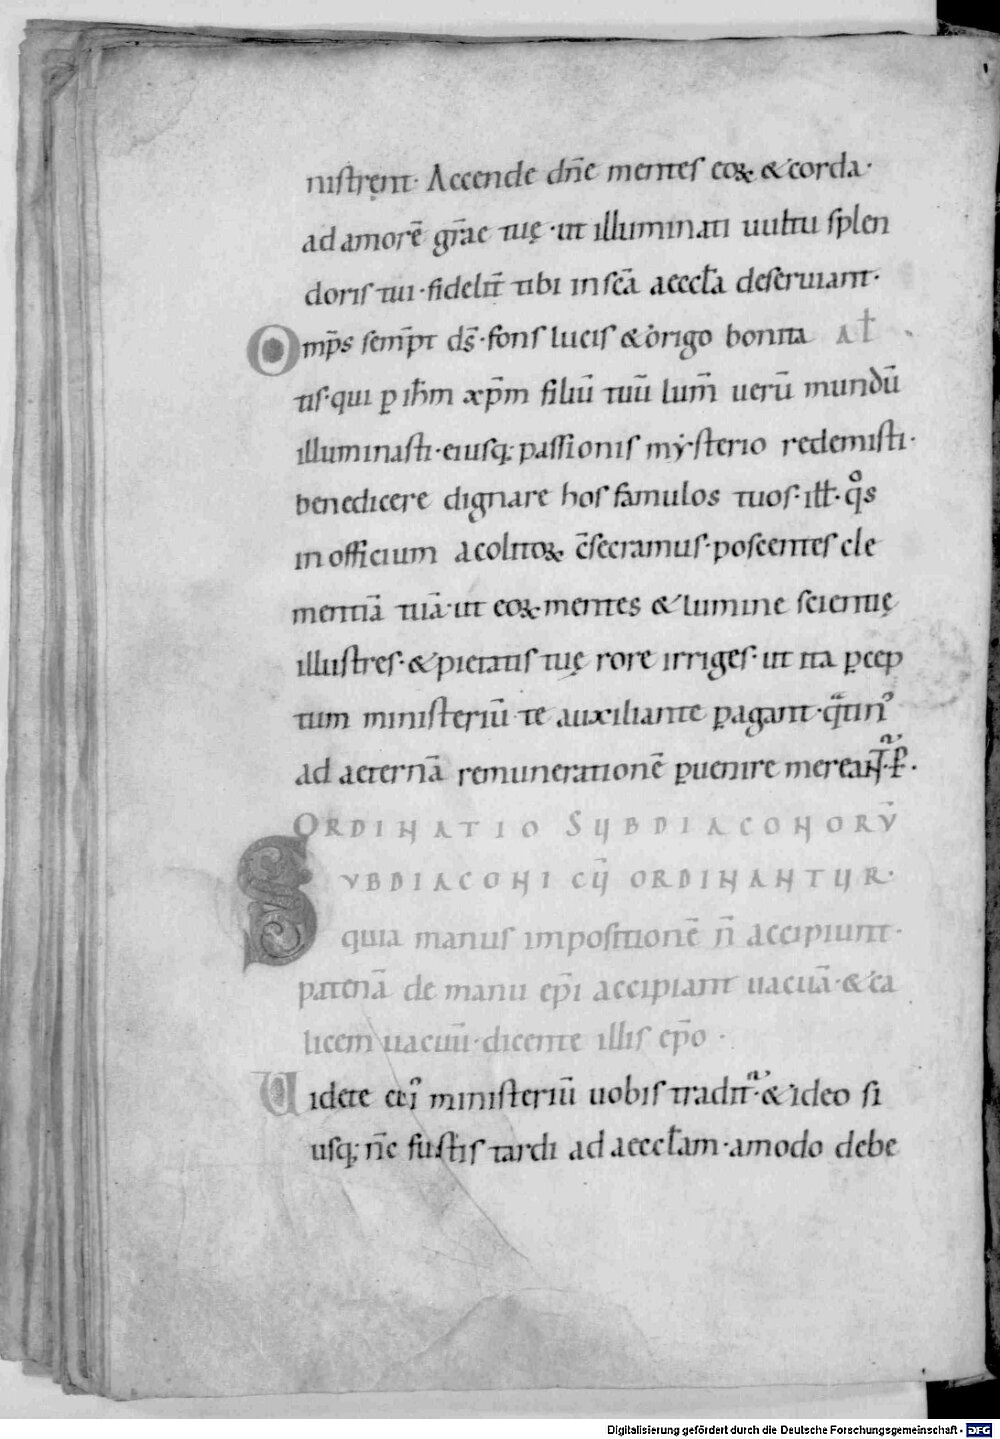 nistrent· Accende dn̄e mentes eoꝝ &corda·
ad amorē gr̄ae tuę ·ut illuminati uultu splen
doris tui ·fidelit̄ tibi in sc̄a aeccl̄a deseruiant·
Omp̄s semp̄t ds̄ ·fons lucis &origo bonita al̄
tis·qui ꝑ ih̄m xp̄m filiū tuū lum̄ uerū mundū
illuminasti·eiusq; passionis mẏsterio redemisti·
benedicere dignare hos famulos tuos·ill̄·qͦs
in officium acolitoꝝ c̄secramus·poscentes cle
mentiā tuā·ut eoꝝ·mentes &lumine scientię
illustres·&pietatis tuę rore irriges·ut ita ꝑcep
tum ministeriū te auxiliante ꝑagant·qͣtinꝰ
ad aeternā remunerationē ꝑuenire mereant᷑·ꝑ·
ORDINATIO SUBDIACONORV̄
SVBDIACONI CŪ ORDINANTUR·
quia manus impositionē n̄ accipiunt·
patenā de manu ep̄i accipiant uacuā·&ca
licem uacuū·dicente illis ep̄o·
Uidete cuiꝰ ministeriū uobis tradit᷑·&ideo si
usq; n̄c fuistis tardi ad aeccl̄am·amodo debe
Digitalisierung gefördert durch die Deutsche Forschungsgemeinschaft - DFG